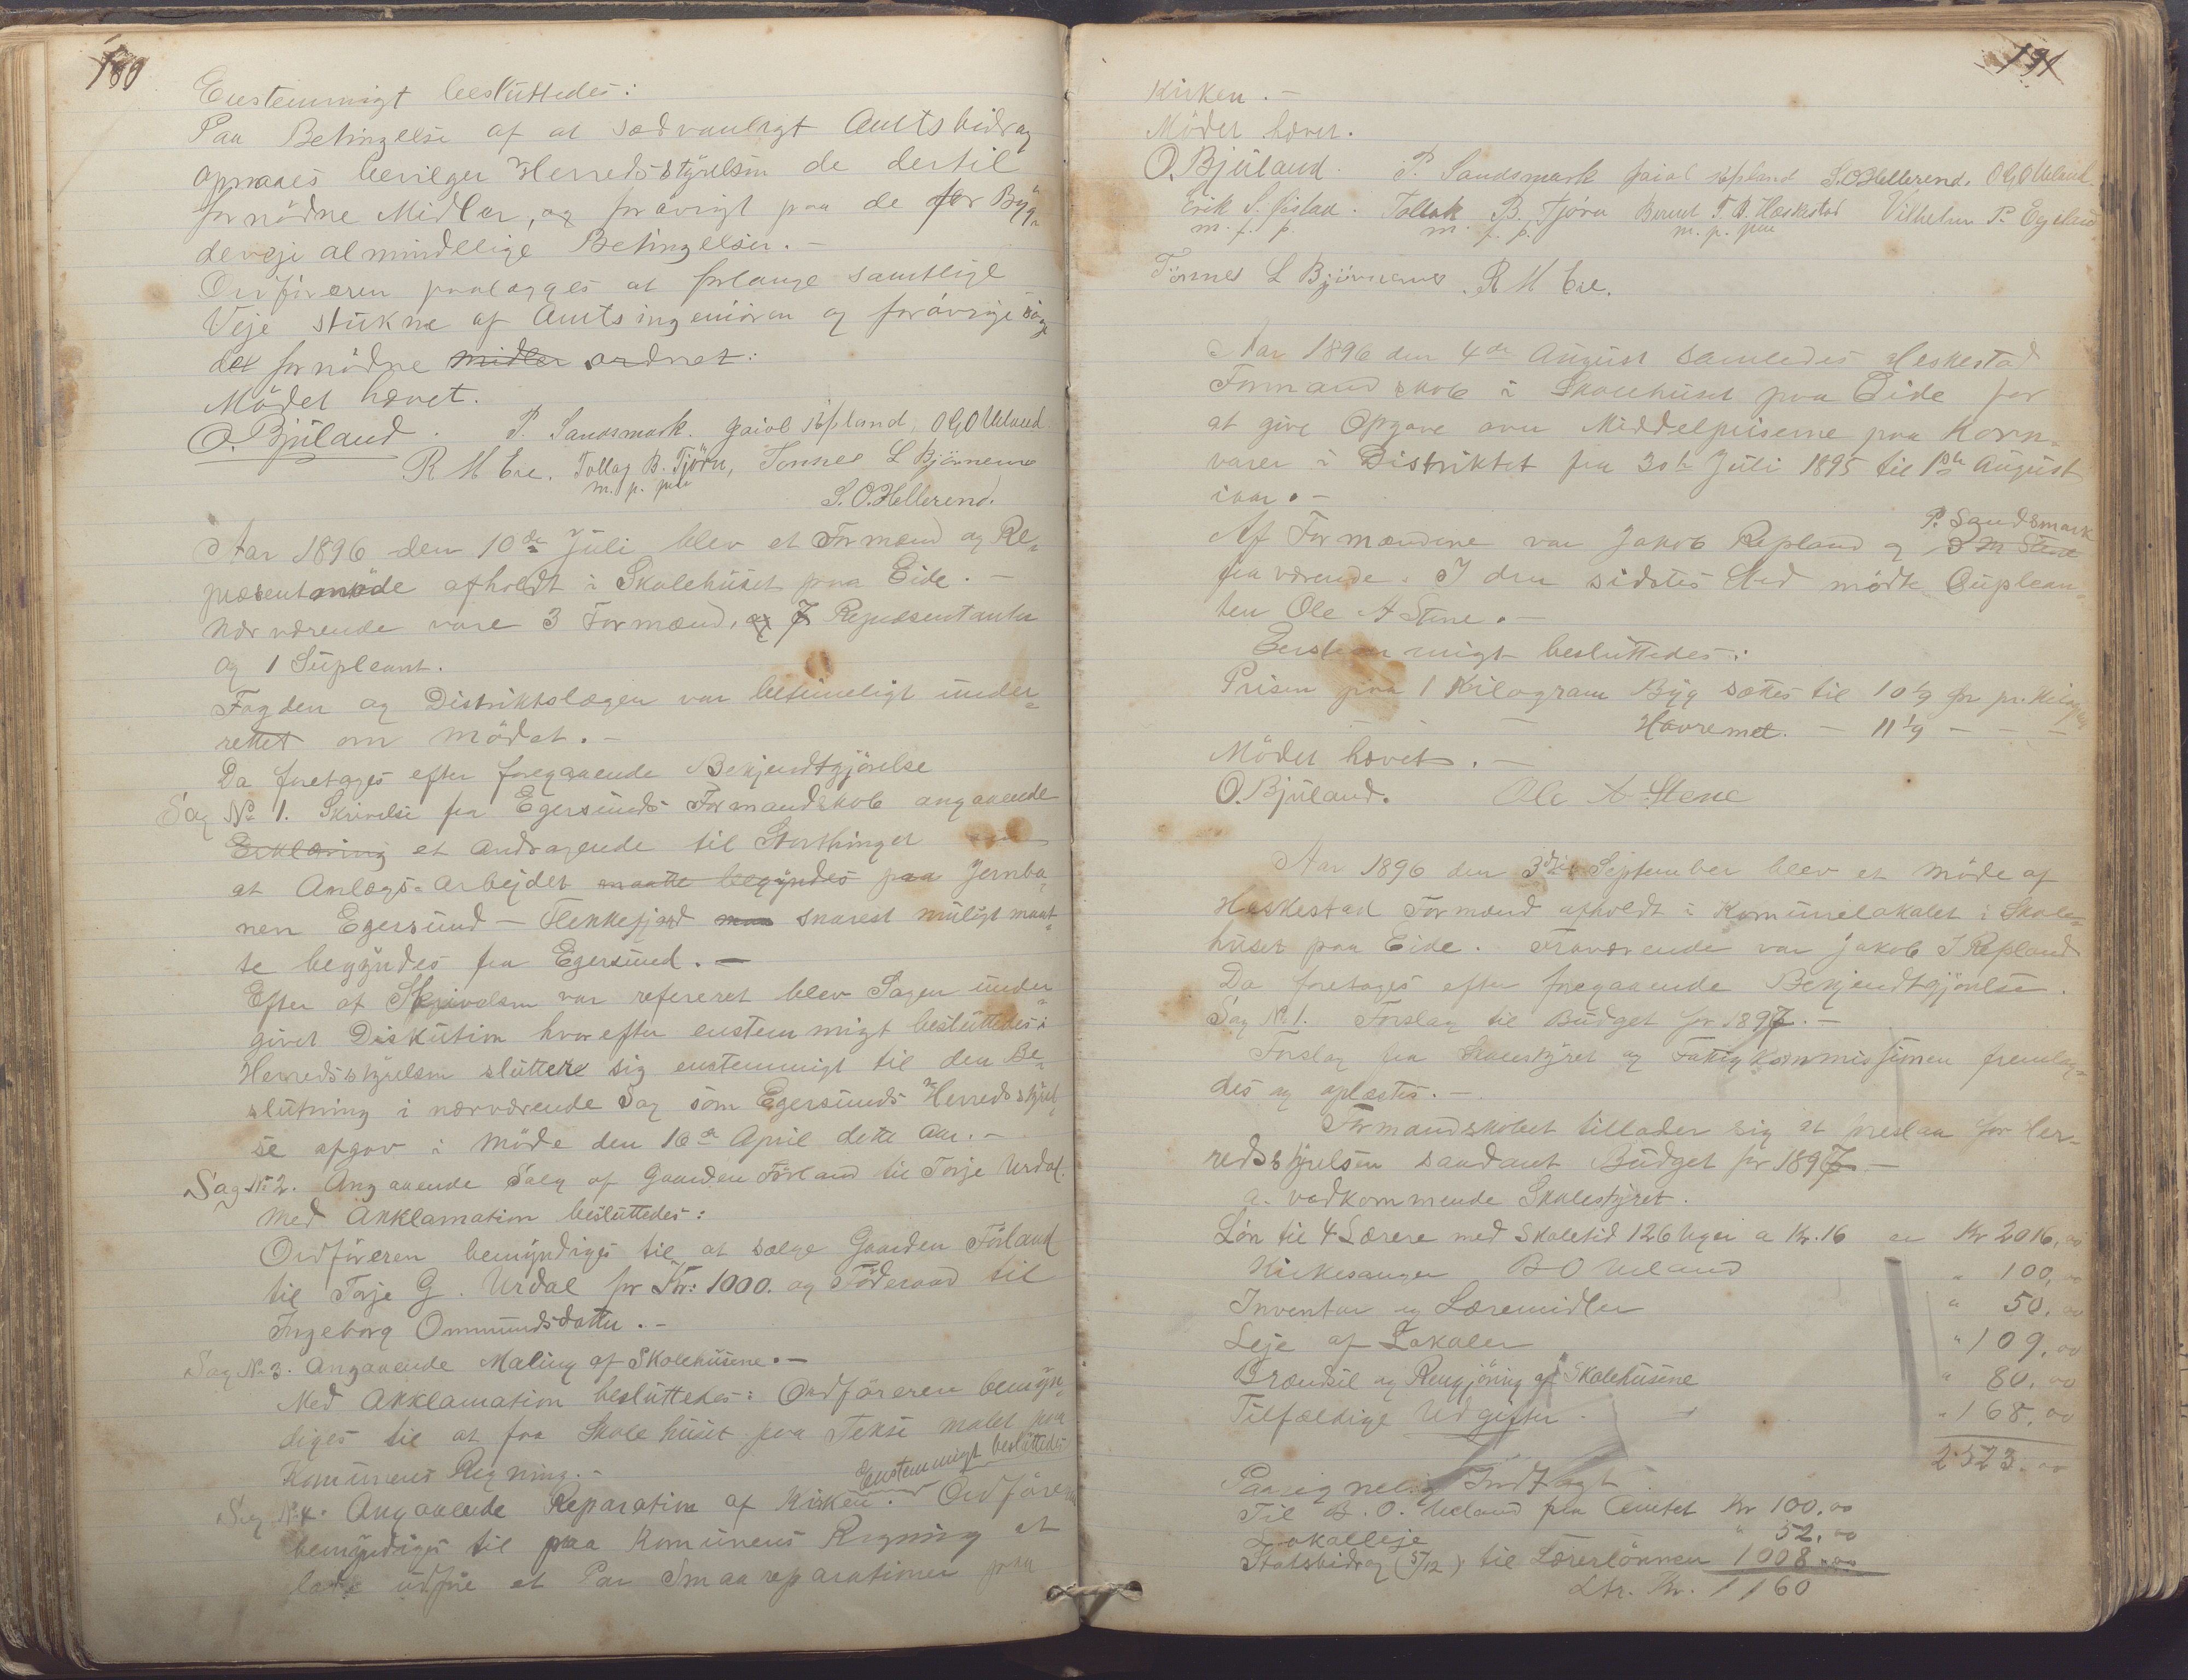 180
Enstemmigt besluttedes:
Paa Betingelse af at sædvanligt Amtsbidrag
opnaaes bevilger Herredsstyrelsen de dertil
fornödne Midler, og forövrigt paa de for Byg-
deveje almindelige Betingelser. -
Ordföreren paalægges at forlange samtlige
Veje stukne af Amtsingeniören og forövrigt söge
det fornödne midler ordnet:
Mödet hævet.
O. Bjuland. P. Sandsmark. Jakob Repland, O G O Ueland
R M Eie. Tollag B. Tjörn, Tönnes L Björnemo
m. p. pen
S. O. Hellerend.
Aar 1896 den 10de Juli blev et Formænd og Re-
præsentmöde afholdt i Skolehuset paa Eide. -
Nærværende vare 3 Formænd, og 7 Repræsentanter
og 1 Supleant.
Fogden og Distriktslægen var betimeligt under-
rettet om Mödet. -
Da foretoges efter foregaaende Bekjendtgjörelse
Sag No 1. Skrivelse fra Egersunds Formandskab angaaende
Erklæring et Andragende til Storthinget
at Anlægs-arbejdet maatte begyndes paa Jernba-
nen Egersund - Flekkefjord maa snarest muligt maat-
te begyndes fra Egersund. -
Efter at Skrivelsen var refereret blev Sagen under-
givet Diskution hvorefter enstemmigt besluttedes:
Herredsstyrelsen sluttere sig enstemmigt til den Be-
slutning i nærværende Sag som Egersunds Herredsstyrel-
se afgav i Möde den 16de April dette Aar. -
Sag No 2. Angaaende Salg af Gaarden Förland til Torje Urdal.
Med Akklamation besluttedes:
Ordföreren bemyndiges til at sælge Gaarden Förland
til Torje G. Urdal for Kr: 1000. og Föderaad til
Ingeborg Ommundsdatter. -
Sag No 3. Angaaende Maling af Skolehusene. -
Med Akklamation besluttedes: Ordföreren bemyn-
diges til at faa Skolehuset paa Tekse malet paa
Komunens Regning. -
Enstemmigt besluttedes
Sag No 4. Angaaende Reparation af Kirken. Ordföreren
bemyndiges til paa Komunens Regning at
lade udföre et Par Smaareparationer paa
191
Kirken. -
Mödet hævet.
O. Bjuland. P. Sandsmark Jakob Repland S. O. Hellerend. O G O Ueland.
Erik S. Tollak B. Tjörn Bernt T. B. Heskestad Vilhelm P. Egeland
m. f. p. m. f. p. m. p. pen
Tönnes L Björnemo. R M Eie.
Aar 1896 den 4de August samledes Heskestad
Formandskab i Skolehuset paa Eide for
at give Opgave over Middelpriserne paa Korn-
varer i Distriktet fra 30te Juli 1895 til 1ste August
iaar. -
P. Sandsmark
Af Formændene var Jakob Repland og
fraværende. I den sidstes Sted mödte Suplean-
ten Ole A Stene. -
Enstemmigt besluttedes:
Prisen paa 1 Kilogram Byg sættes til 10 1/9 Ör pr. Kilogram
- - - Havremel. - 11 1/9 - - -
Mödet hævet. -
O. Bjuland. Ole A. Stene
Aar 1896 den 3die September blev et Möde af
Heskestad Formænd afholdt i Komunelokalet i Skole-
huset paa Eide. Fraværende var Jakob J Repland
Da foretoges efter foregaaende Bekjendtgjörelse.
Sag No 1. Forslag til Budget for 1897. -
Forslag fra Skolestyret og Fattigkommissionen fremlag-
des og oplæstes. -
Formandskabet tillader sig at foreslaa for Her-
redsstyrelsen saadant Budget for 1897. -
a. vedkommende Skolestyret.
Lön til 4 Lærere med Skoletid 126 Uger a Kr. 16 er Kr 2016,00
Kirkesanger B O Ueland " 100,00
Inventar og Læremidler " 50,00
Leje af Lokaler " 109,00
Brændsel og Rengjöring af Skolehusene " 80,00
Tilfældige Udgifter. " 168,00
2523.00
Paaregnelig Indtægt
Til B. O. Ueland fra Amtet Kr 100,00
Lokalleje " 52,00
Statsbidrag (5/12) til Lærerlönnen 1008,00
Ltr. Kr. 1160